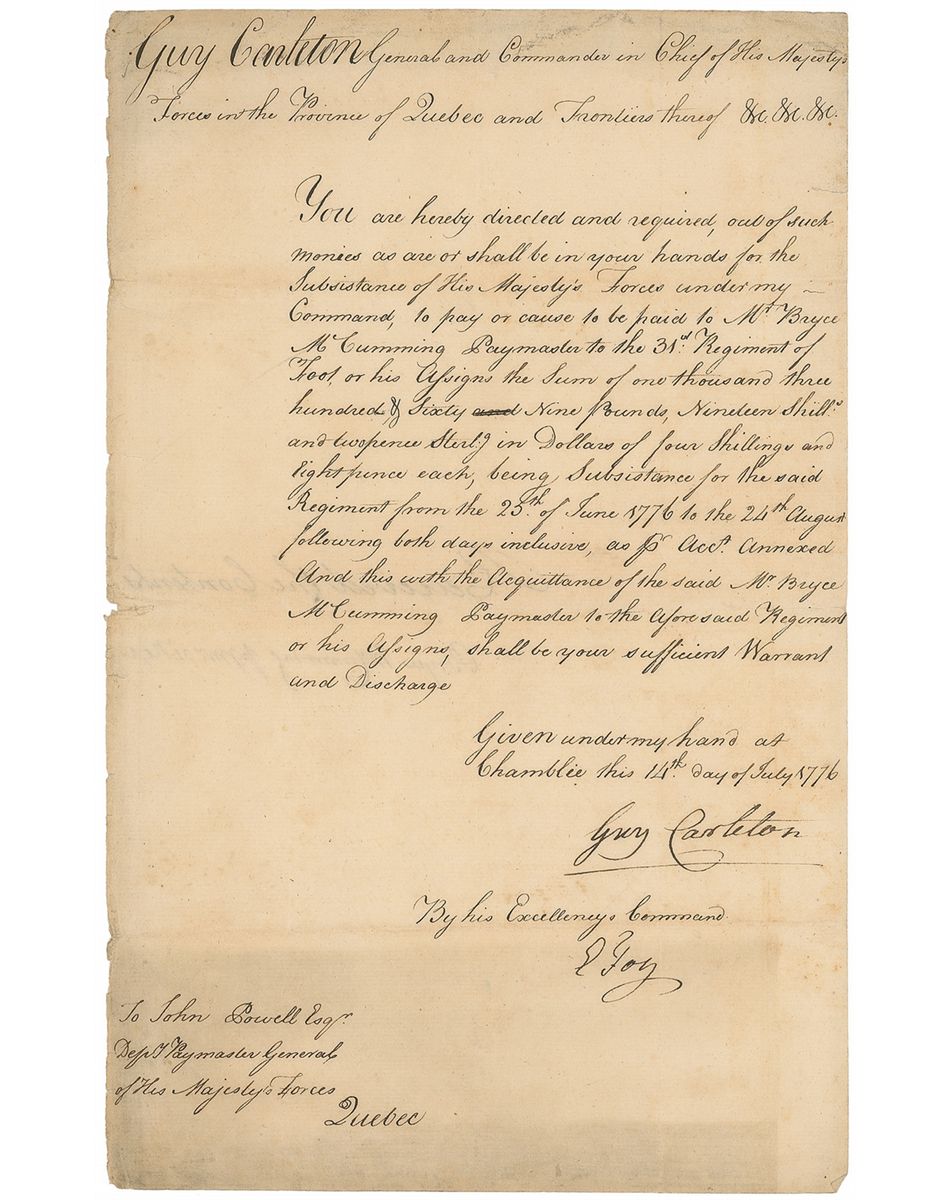 Guy Carleton General and Commander in Chief of His Majesty's
Forces in the Province of Quebec and Frontiers thereof &c. &c. &c.
You are hereby directed and required, out of such
monies as are or shall be in your hands for the
Subsistance of His Majesty's Forces under my
Command, to pay or cause to be paid to Mr. Bryce
McCumming Paymaster to the 31st. Regiment of
Foot, or his Assigns the Sum of one thousand three
hundred & Sixty and Nine Pounds, Nineteen Shills.
and twopence Sterlg in Dollars of four Shillings and
Eight pence each, being Subsistance for the said
Regiment from the 25th. of June 1776 to the 24th August
following both days inclusive, as pr Acct. Annexed
And this with the Acquittance of the said Mr. Bryce
McCumming Paymaster to the aforesaid Regiment
or his Assigns, shall be your sufficient Warrant
and Discharge
Given under my hand at
Chamblie this 14th. day of July 1776
Guy Carleton
By his Excellency's Command.
E Foy
To John Powell Esqr.
Depy Paymaster General
of His Majesty's Forces
Quebec